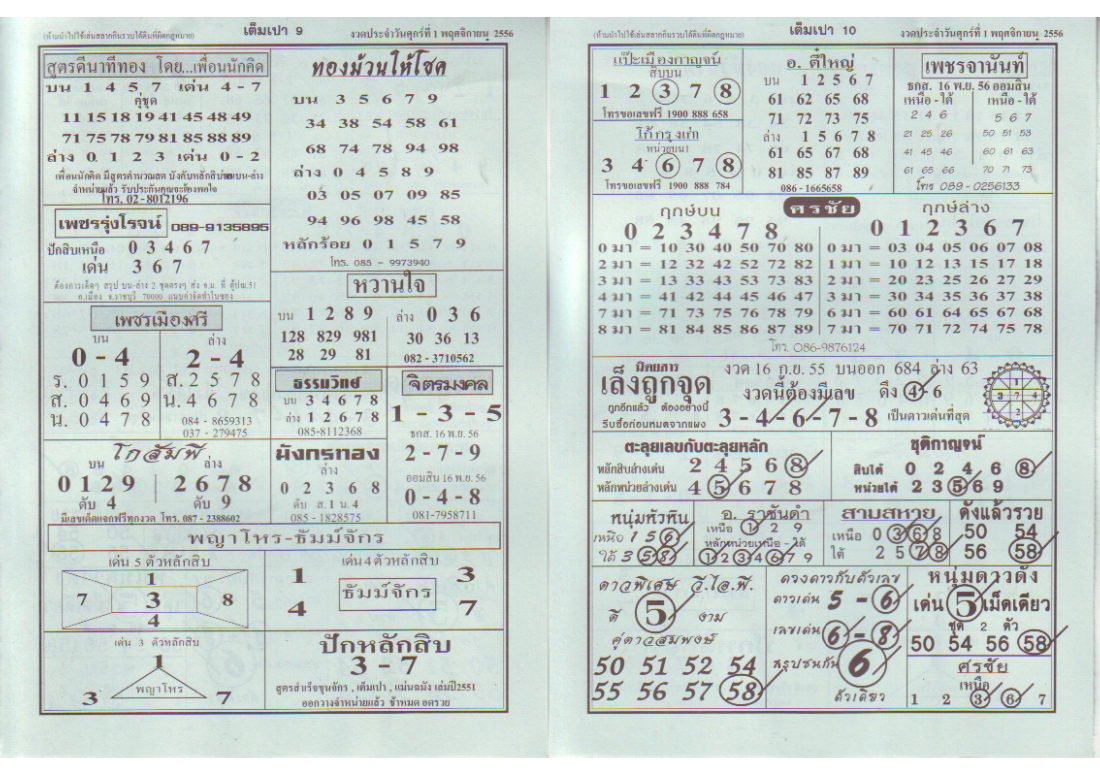 (ห้ามนำไปใช้เล่นสลากกินรวบใต้ดินที่ผิดกฎหมาย) เต็มเปา 9 งวดประจำวันศุกร์ที่ 1 พฤศจิกายน 2556
สูตรดีนาทีทอง โดย...เพื่อนนักคิด
บน 1 4 5 7 เด่น 4 - 7
คู่ชุด
11 15 18 19 41 45 48 49
71 75 78 79 81 85 88 89
ล่าง 0 1 2 3 เด่น 0 - 2
เพื่อนนักคิด มีสูตรคำนวณสด บังคับหลักสิบ บน-ล่าง
จำหน่ายแล้ว รับประกันคุณจะต้องพอใจ
โทร. 02 - 8012196
เพชรรุ่งโรจน์ 089-9135895
ปักสิบเหนือ 0 3 4 6 7
เด่น 3 6 7
ต้องการเด็ดๆ สรุป บน-ล่าง 2 ชุดตรงๆ ส่ง จ.ม. ที่ ตู้ปณ.51
อ.เมือง จ.ราชบุรี 70000 แนบค่าจัดทำใบซอง
เพชรเมืองศรี
บน ล่าง
0 - 4 2 - 4
ร. 0 1 5 9 ส. 2 5 7 8
ส. 0 4 6 9 น. 4 6 7 8
น. 0 4 7 8 084 - 8659313
037 - 279475
โกสัมพี
บน ล่าง
0 1 2 9 2 6 7 8
ดับ 4 ดับ 9
มีเลขเด็ดแจกฟรีทุกงวด โทร. 087 - 2388602
ทองม้วนให้โชค
บน 3 5 6 7 9
34 38 54 58 61
68 74 78 94 98
ล่าง 0 4 5 8 9
03 05 07 09 85
94 96 98 45 58
หลักร้อย 0 1 5 7 9
โทร. 085 - 9973940
หวานใจ
บน 1 2 8 9 ล่าง 0 3 6
128 829 981 30 36 13
28 29 81 082 - 3710562
ธรรมวิทย์
บน 3 4 6 7 8
ล่าง 1 2 6 7 8
085-8112368
มังกรทอง
ล่าง
0 2 3 6 8
ดับ ส. 1 น. 4
085 - 1828575
จิตรมงคล
1 - 3 - 5
ธกส. 16 พ.ย. 56
2 - 7 - 9
ออมสิน 16 พ.ย. 56
0 - 4 - 8
081-7958711
พญาโหร-ธัมม์จักร
เด่น 5 ตัวหลักสิบ
1
7 3 8
4
เด่น 4 ตัวหลักสิบ
1 3
ธัมม์จักร
4 7
เด่น 3 ตัวหลักสิบ
1
พญาโหร
3 7
ปักหลักสิบ
3 - 7
สูตรสำเร็จขุนจักร , เต็มเปา , แม่นฉมัง เล่มปี2551
ออกวางจำหน่ายแล้ว ช้าหมด อดรวย
(ห้ามนำไปใช้เล่นสลากกินรวบใต้ดินที่ผิดกฎหมาย) เต็มเปา 10 งวดประจำวันศุกร์ที่ 1 พฤศจิกายน 2556
แป๊ะเมืองกาญจน์
สิบบน
1 2 3 7 8
โทรขอเลขฟรี 1900 888 658
โก้กรุงเก่า
หน่วยบน1
3 4 6 7 8
โทรขอเลขฟรี 1900 888 784
อ. ตี๋ใหญ่
บน 1 2 5 6 7
61 62 65 68
71 72 73 75
ล่าง 1 5 6 7 8
61 65 67 68
81 85 87 89
086 - 1665658
เพชรจานันท์
ธกส. 16 พ.ย. 56 ออมสิน
เหนือ - ใต้ เหนือ - ใต้
2 4 6 5 6 7
21 25 26 50 51 53
41 45 46 60 61 63
61 65 66 70 71 73
โทร 089 - 0256133
ฤกษ์บน ศรชัย ฤกษ์ล่าง
0 2 3 4 7 8 0 1 2 3 6 7
0 มา = 10 30 40 50 70 80 0 มา = 03 04 05 06 07 08
2 มา = 12 32 42 52 72 82 1 มา = 10 12 13 15 17 18
3 มา = 13 33 43 53 73 83 2 มา = 20 23 25 26 27 29
4 มา = 41 42 44 45 47 36 3 มา = 30 34 35 36 37 38
7 มา = 71 73 75 76 78 79 6 มา = 60 61 64 65 67 68
8 มา = 81 84 85 86 87 89 7 มา = 70 71 72 74 75 78
โทร. 086-9876124
นิตยสาร
เล็งถูกจุด
ถูกอีกแล้ว ต้องอย่างนี้
รีบซื้อก่อนหมดจากแผง
งวด 16 ก.ย. 55 บนออก 684 ล่าง 63
งวดนี้ต้องมีเลข ดึง 4 - 6
3 - 4 - 6 - 7 - 8 เป็นดาวเด่นที่สุด
1
3 7 4
2
ตะลุยเลขกับตะลุยหลัก
หลักสิบล่างเด่น 2 4 5 6 8
หลักหน่วยล่างเด่น 4 5 6 7 8
ชุติกาญจน์
สิบใต้ 0 2 4 6 8
หน่วยใต้ 2 3 5 6 9
หนุ่มหัวหิน
เหนือ 1 5 6
ใต้ 3 5 8
อ. ราชันดำ
เหนือ 1 2 9
หลักหน่วยเหนือ - ใต้
1 2 3 4 6 7 9
สามสหาย
เหนือ 0 3 6 8
ใต้ 2 5 7 8
ดังแล้วรวย
50 54
56 58
ดาวพิเศษ วี.ไอ.พี.
ดี 5 งาม
คู่ดาวสมพงษ์
50 51 52 54
55 56 57 58
ดวงดาวกับตัวเลข
ดาวเด่น 5 - 6
เลขเด่น 6 - 8
สรุปชนกัน 6
ตัวเดียว
หนุ่มดาวดัง
เด่น 5 เม็ดเดียว
ชุด 2 ตัว
50 54 56 58
ศรชัย
เหนือ
1 2 3 6 7